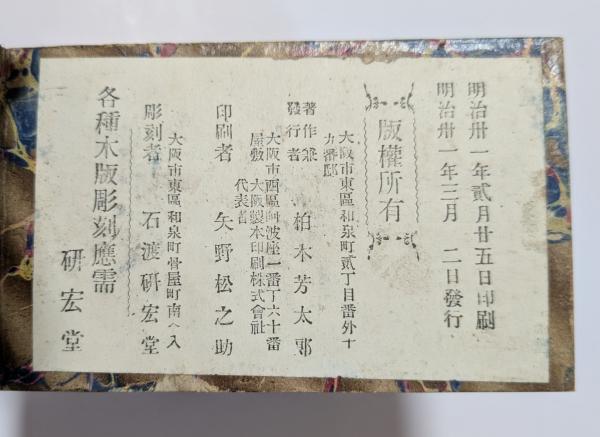 明治卅一年貳月廿五日印刷
明治卅一年三月　二日發行
版權所有
大阪市東區和泉町貳丁目番外十
九番邸
著作兼
發行者　柏木芳太郎
大阪市西區阿波座一番丁六十番
屋敷　大阪製本印刷株式會社
代表者
印刷者　矢野松之助
大阪市東區和泉町骨屋町南へ入
彫刻者　石渡硏宏堂
各種木版彫刻應需
硏宏堂